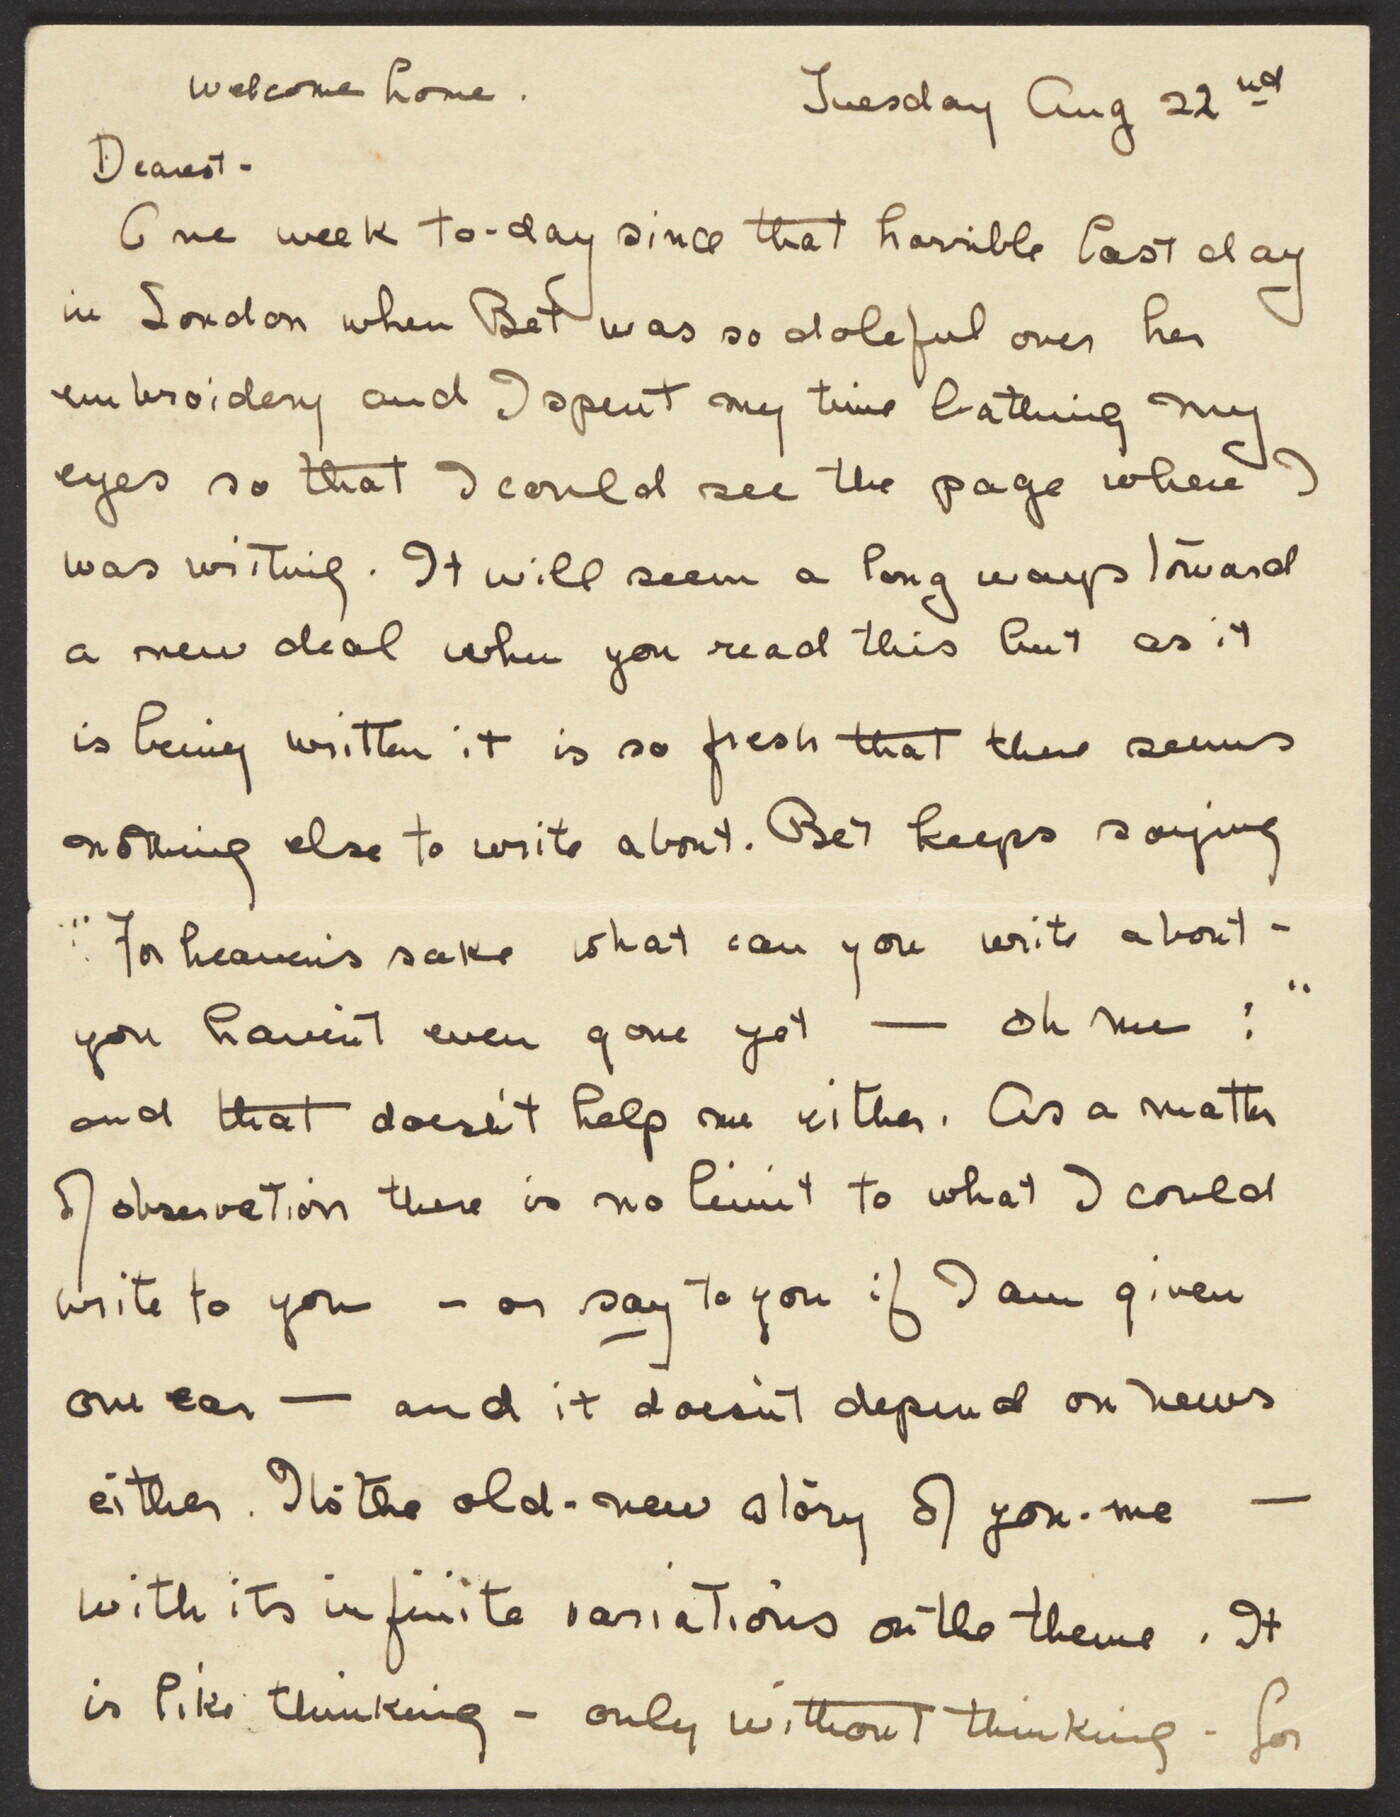 Welcome home.
Tuesday Aug 22nd
Dearest -
One week to-day since that horrible last day
in London when Bet was so doleful over her
embroidery and I spent my time bathing my
eyes so that I could see the page where I
was writing. It will seem a long ways toward
a new deal when you read this but as it
is being written it is so fresh that there seems
nothing else to write about. Bet keeps saying
"For heaven's sake what can you write about -
you haven't even gone yet — oh me !"
and that doesn't help me either. As a matter
of observation there is no limit to what I could
write to you - or say to you if I am given
one ear — and it doesn't depend on news
either. It's the old-new story of you-me —
with its infinite variations on the theme. It
is like thinking - only without thinking - for